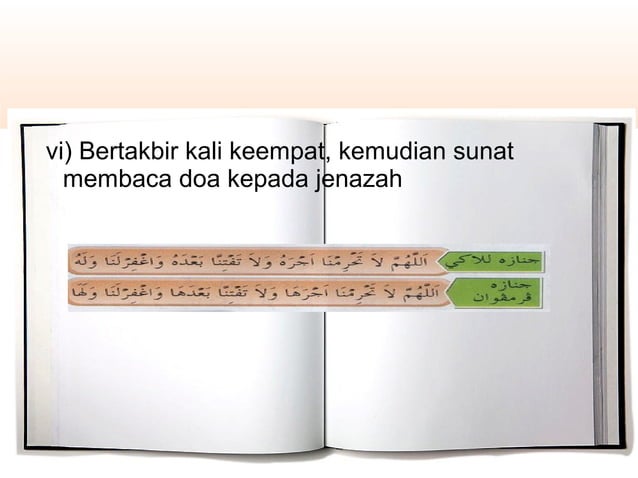 vi) Bertakbir kali keempat, kemudian sunat
membaca doa kepada jenazah
جنازه للاكي
اَللّٰهُمَّ لاَ تَحْرِمْنَا اَجْرَهُ وَلاَ تَفْتِنَّا بَعْدَهُ وَاغْفِرْلَنَا وَلَهُ
جنازه
ڤرمڤوان
اَللّٰهُمَّ لاَ تَحْرِمْنَا اَجْرَهَا وَلاَ تَفْتِنَّا بَعْدَهَا وَاغْفِرْلَنَا وَلَهَا